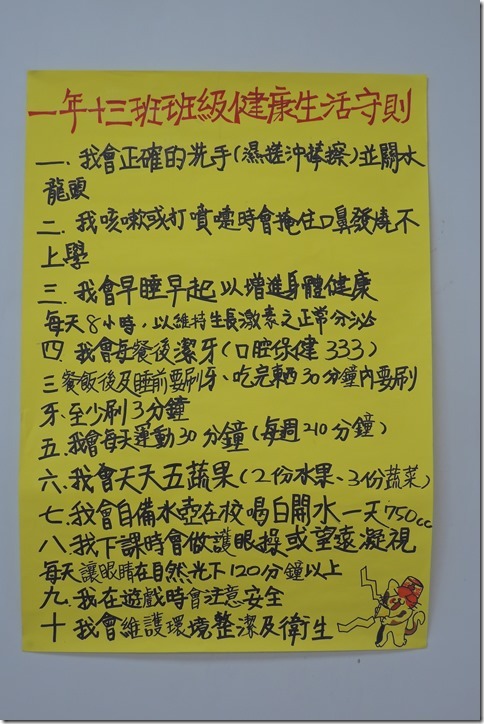 一年十三班班級健康生活守則
一. 我會正確的洗手(濕搓沖捧擦)並關水
龍頭
二. 我咳嗽或打噴嚏時會掩住口鼻發燒不
上學
三. 我會早睡早起以增進身體健康
每天8小時，以維持生長激素之正常分泌
四. 我會每餐後潔牙(口腔保健333)
三餐飯後及睡前要刷牙、吃完東西30分鐘內要刷
牙、至少刷3分鐘
五. 我會每天運動30分鐘(每週210分鐘)
六. 我會天天五蔬果(2份水果、3份蔬菜)
七. 我會自備水壺在校喝白開水一天750cc
八. 我下課時會做護眼操或望遠凝視
每天讓眼睛在自然光下120分鐘以上
九. 我在遊戲時會注意安全
十 我會維護環境整潔及衛生